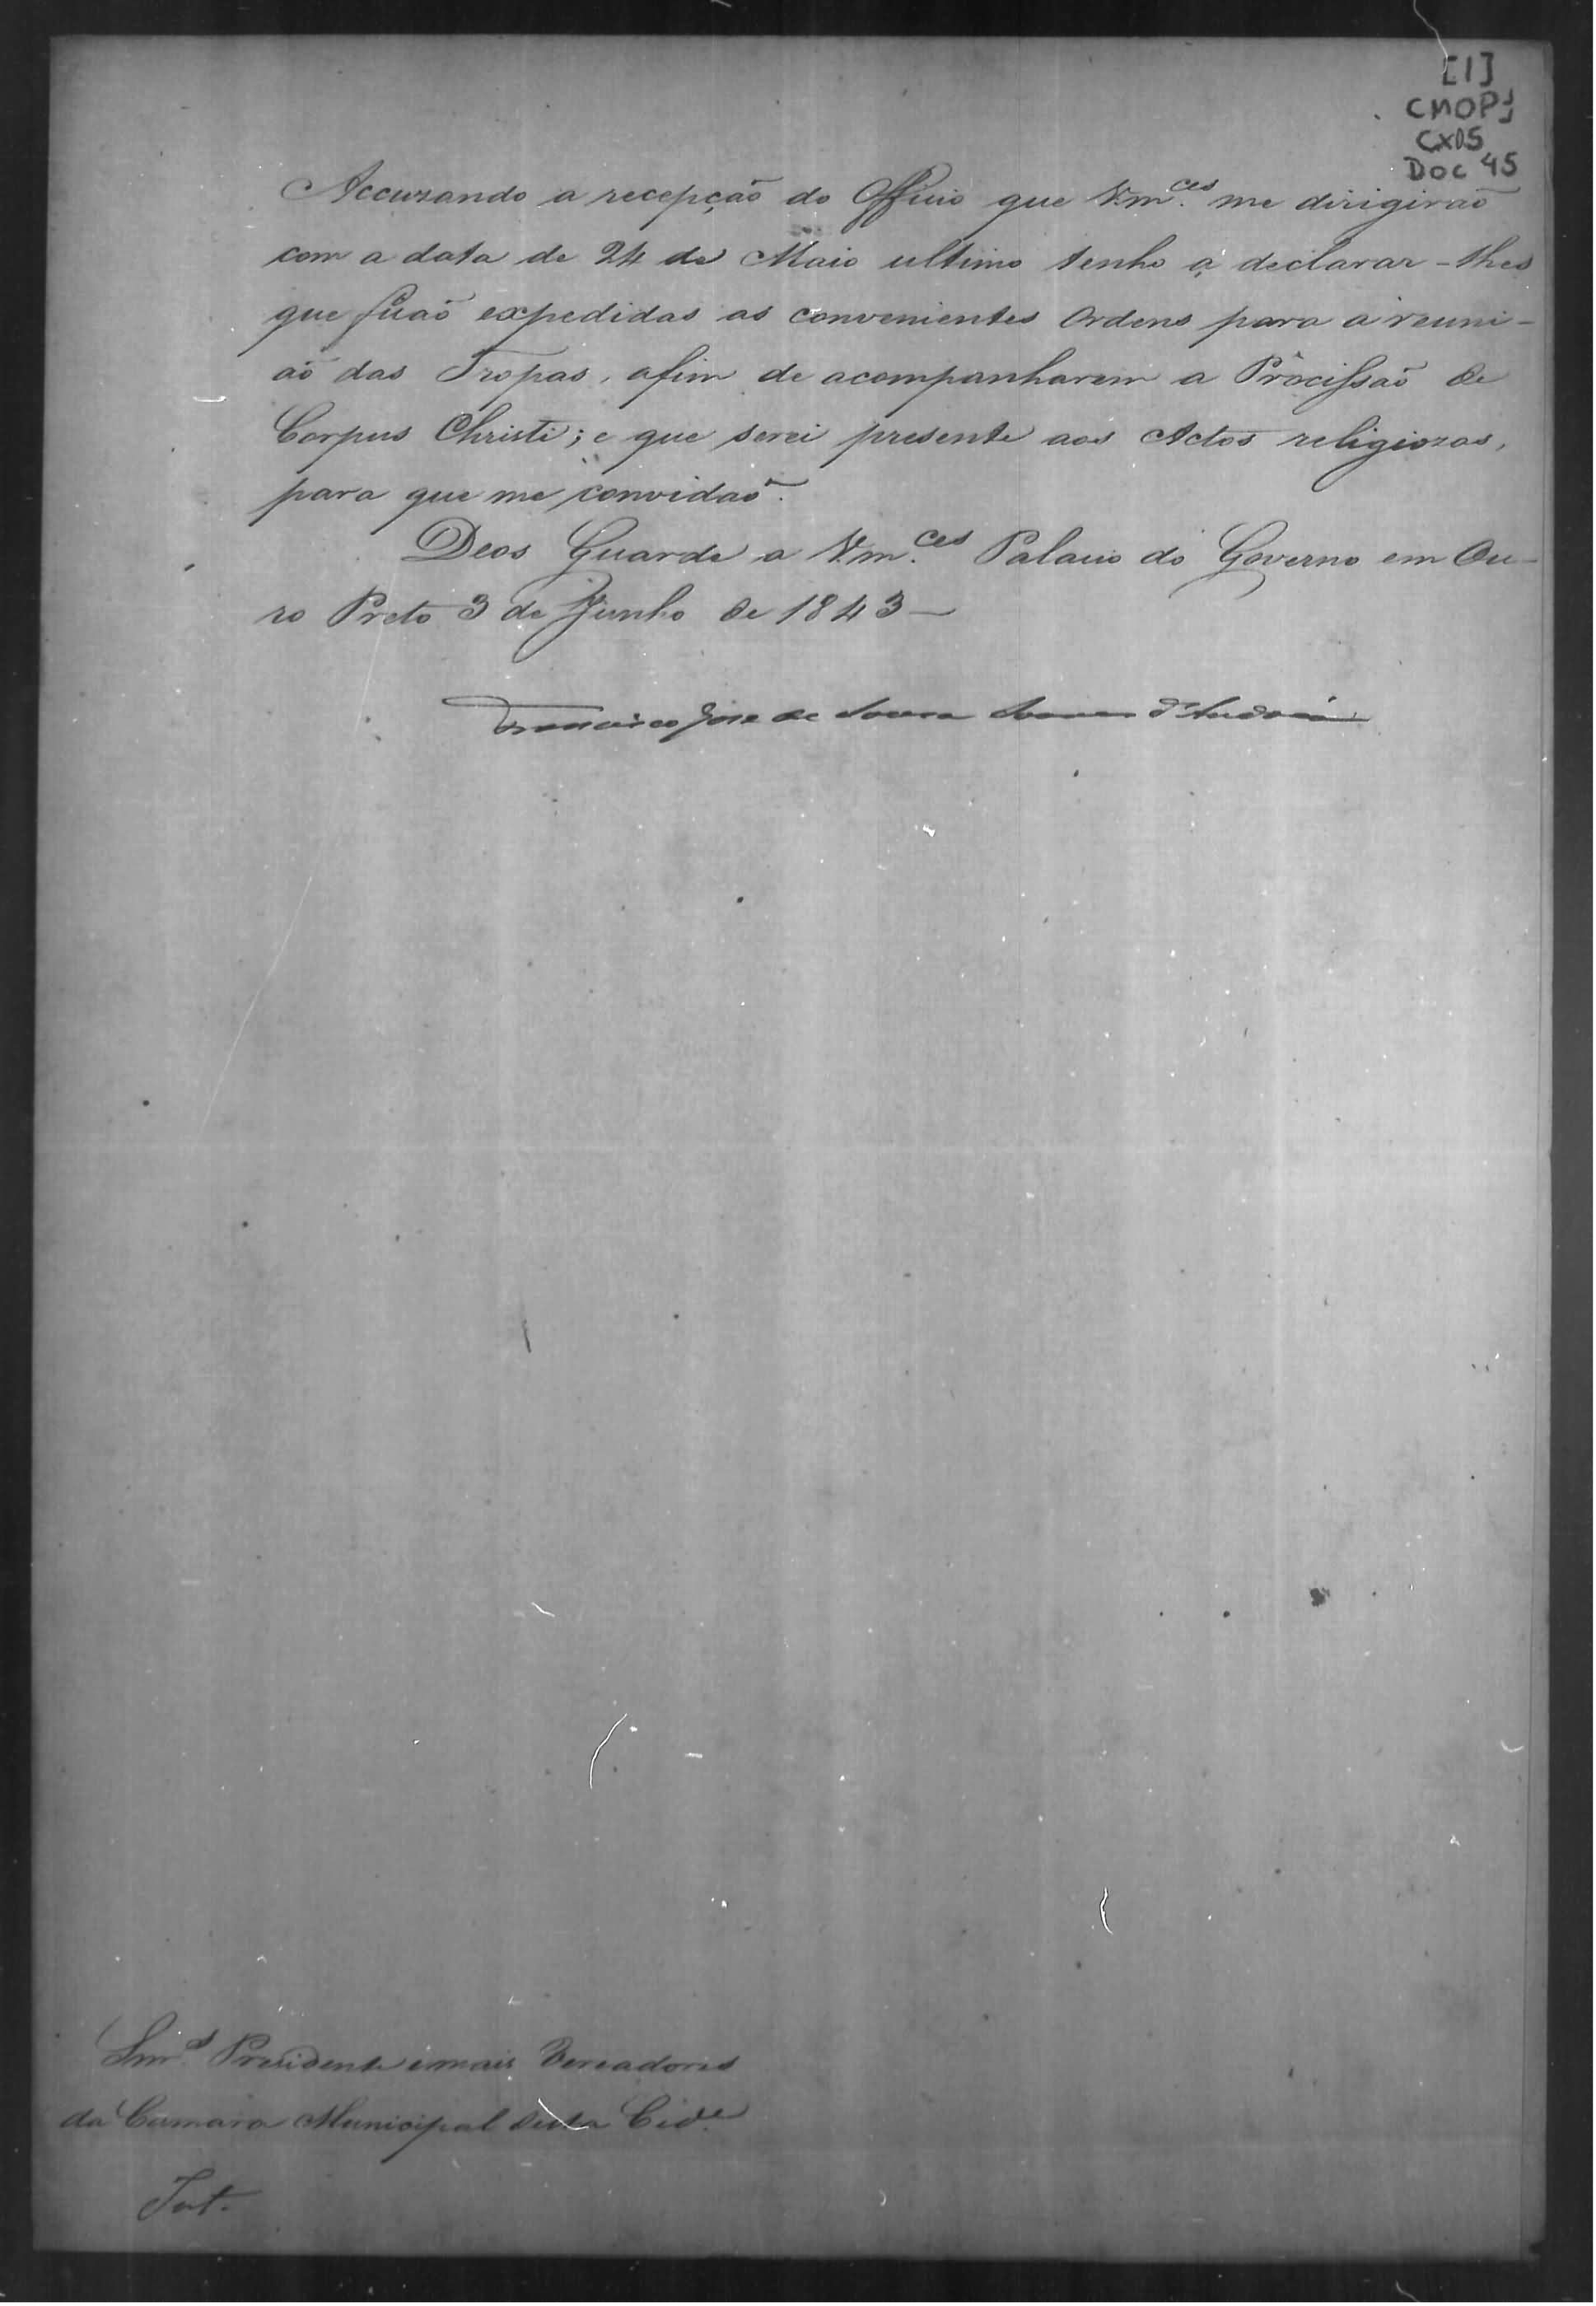 [1]
CMOP
CX05
Doc 45
Accuzando a recepção do Officio que V.m.ces me dirigiraõ
com a data de 24 de Maio ultimo tenho a declarar-lhes
que ficaõ expedidas as convenientes Ordens para a reuni-
aõ das Tropas, afim de acompanharem a Procissaõ de
Corpus Christi; e que serei presente aos Actos religiozos,
para que me convidaõ.
Deos Guarde a V.m.ces Palacio do Governo em Ou-
ro Preto 3 de Junho de 1843 —
Francisco José de Souza Soares d'Andréa
Snr.s Presidente e mais Vereadores
da Camara Municipal desta Cid.e